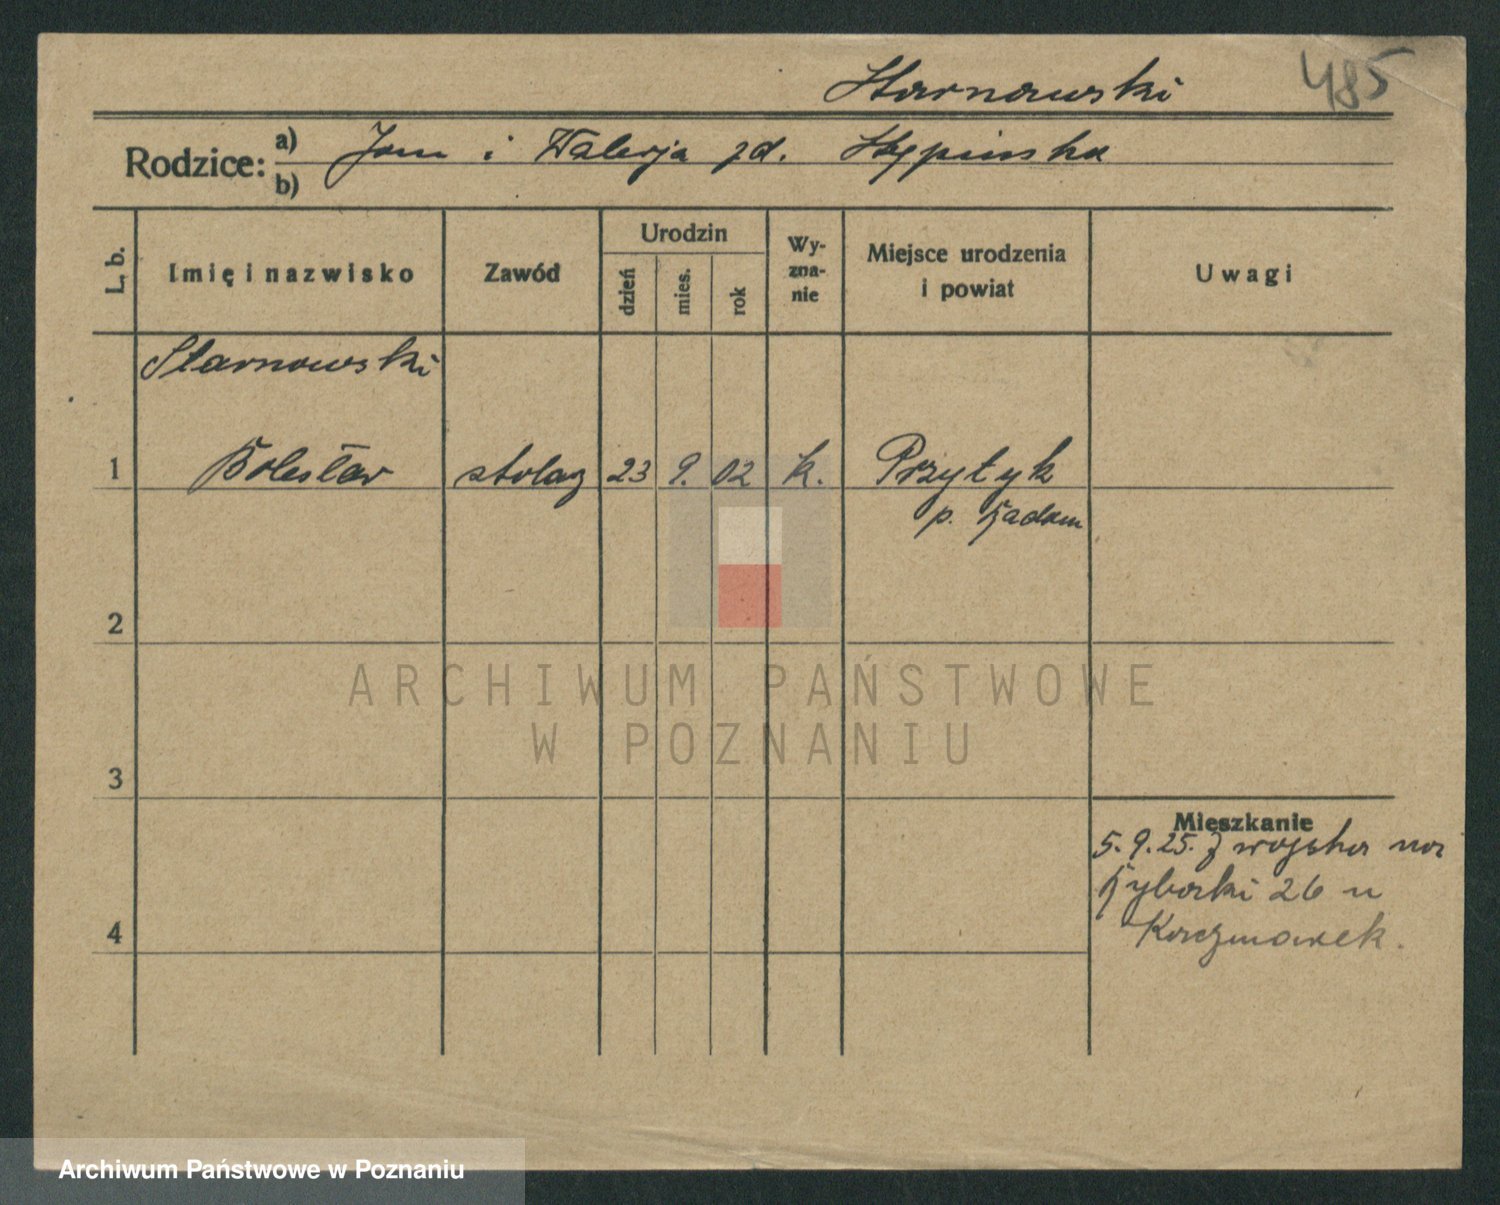 Starnawski
485
Rodzice: a) Jan i Walerja zd. Stępińska
b)
L. b.
Imię i nazwisko
Zawód
Urodzin
dzień
mies.
rok
Wy-
zna-
nie
Miejsce urodzenia
i powiat
Uwagi
Starnowski
1 Bolesław stolarz 23 9. 02 k. Przytyk
p. Radom
2
ARCHIWUM PAŃSTWOWE
W POZNANIU
3
Mieszkanie
5.9.25. z wojska na
Rybaki 26 u
Kaczmarek.
4
Archiwum Państwowe w Poznaniu